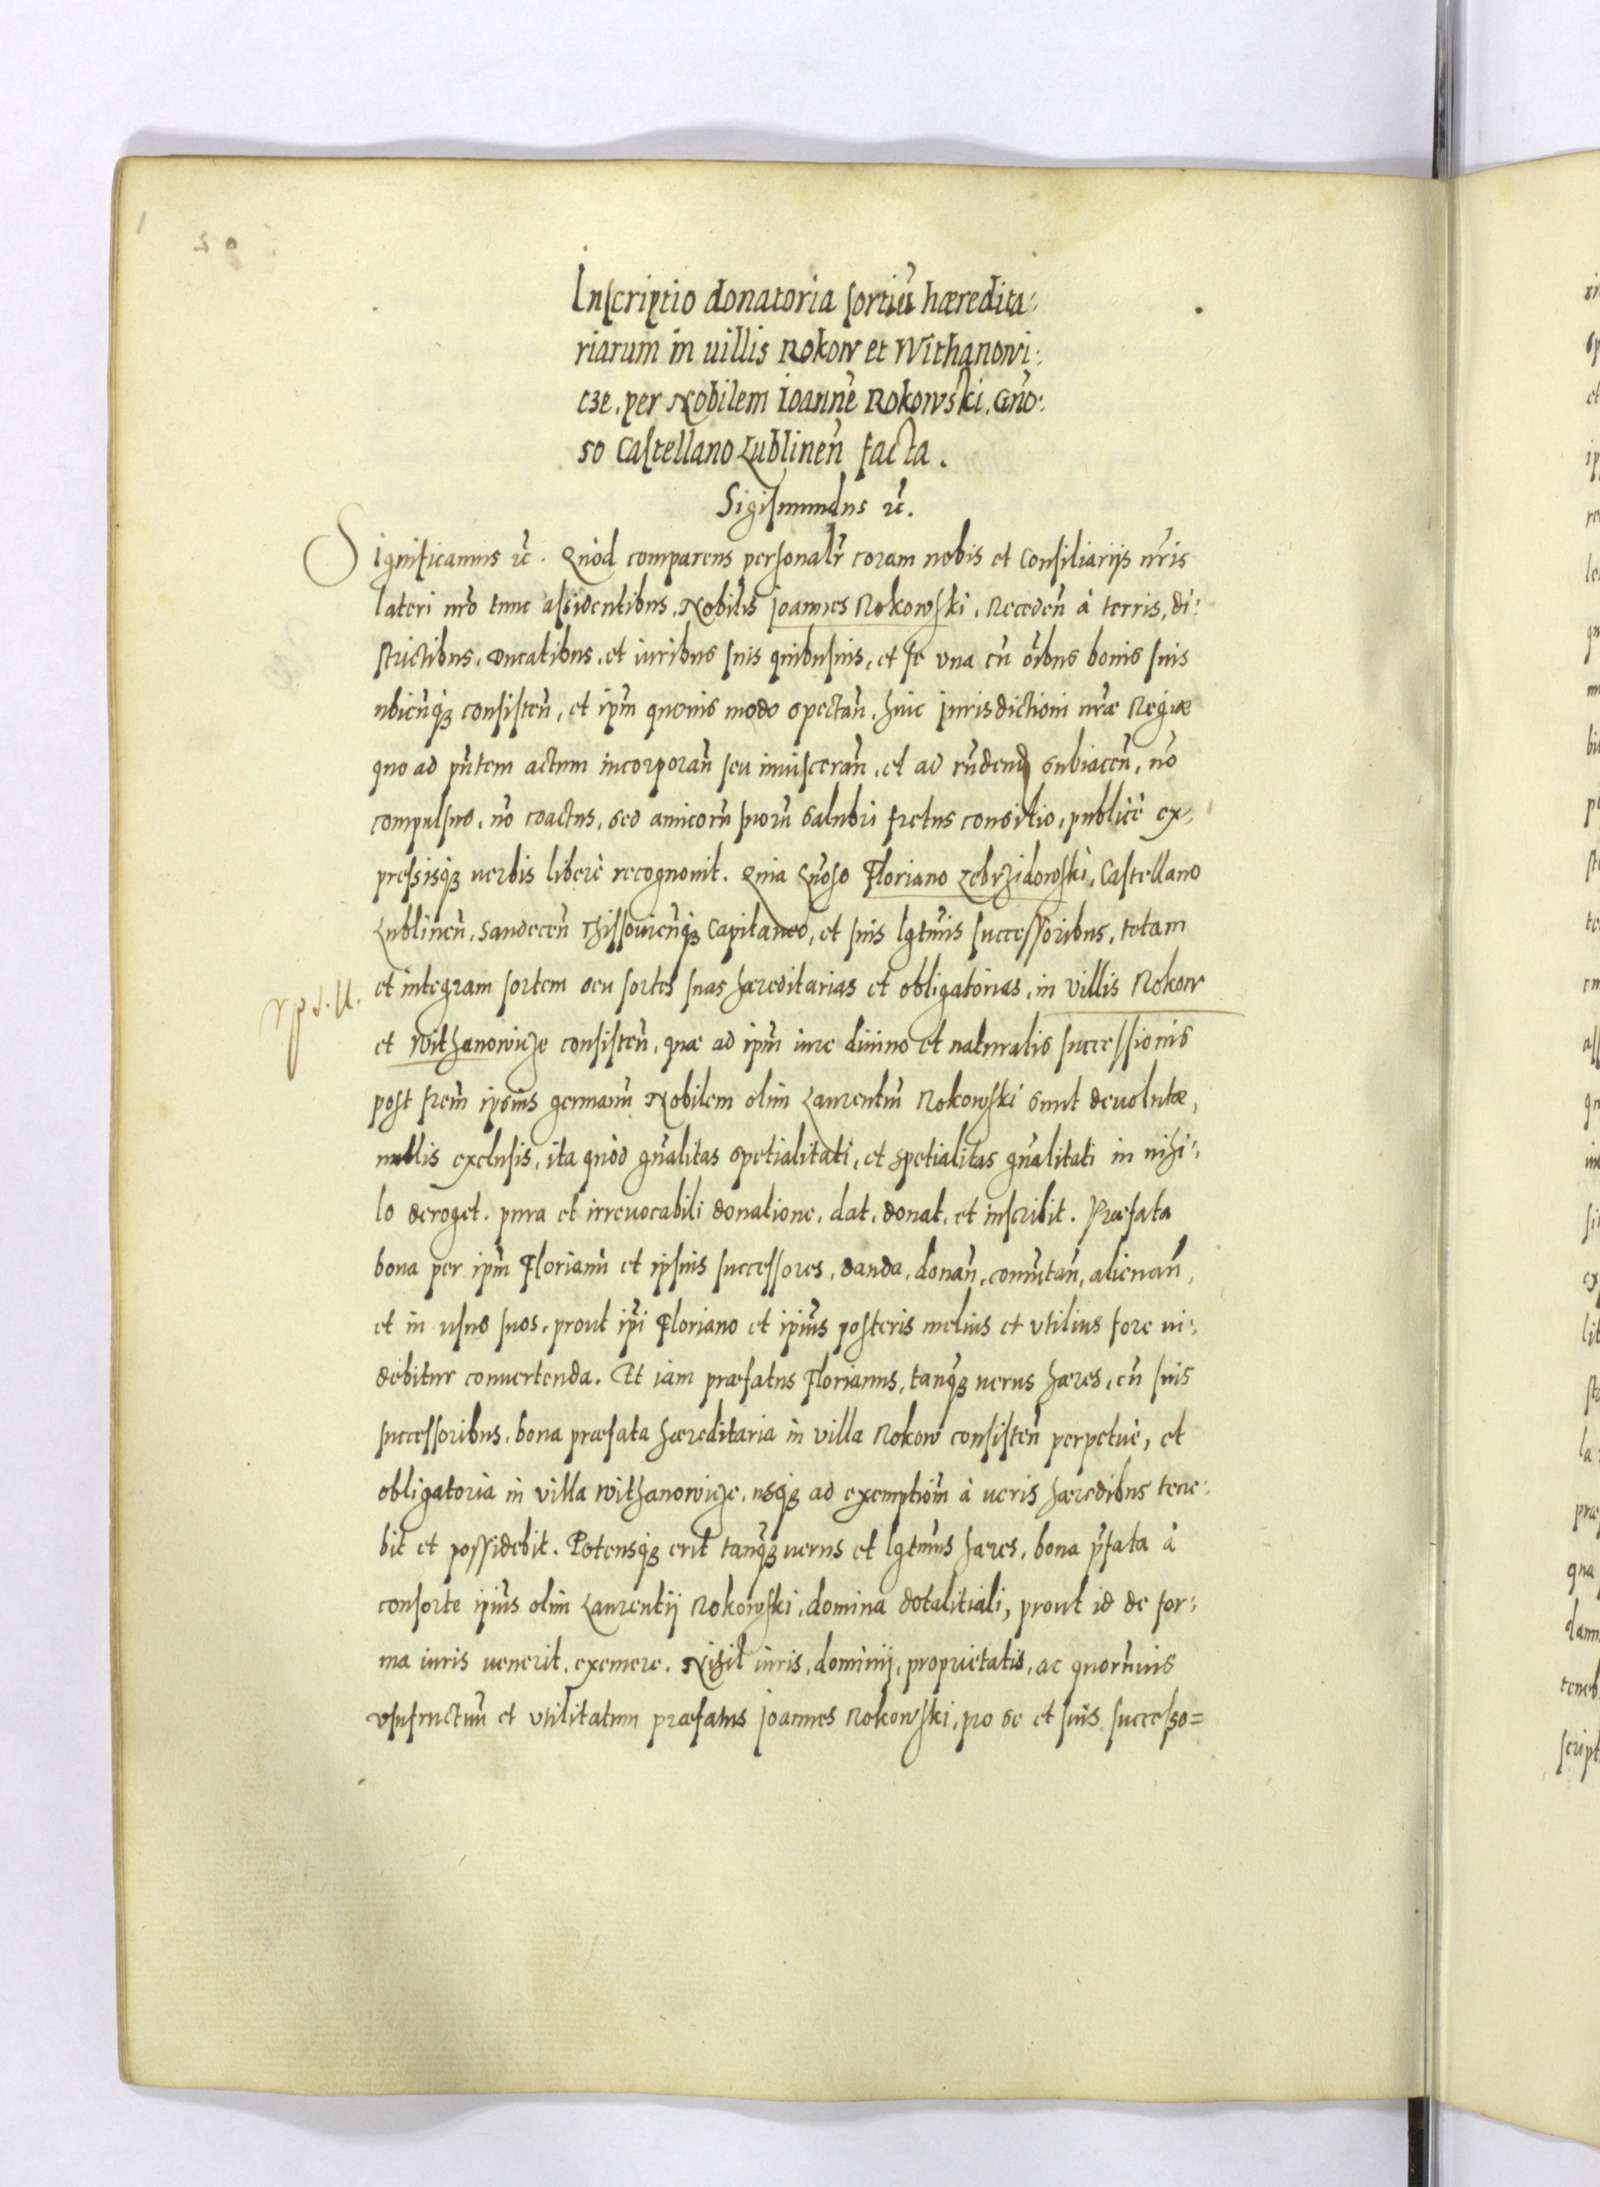 Inscriptio donatoria sortiū hæredita:
riarum in uillis Rokow et Withanowi:
cze, per Nobilem Ioannē Rokowski, Gño:
so Castellano Lublineñ facta.
Sigismundus ꝛc̃.
Significamus ꝛc̃. Quòd comparens personalr̃ coram nobis et Consiliarijs nr̃is
lateri nr̃o tunc assidentibus, Nobilis Joannes Rokowski, Recedeñ à terris, di:
strictibus, ducatibus, et iuribus suis quibusuis, et se una cū oĩbus bonis suis
ubicũqꝫ consisteñ, et ipm̃ quouis modo spectañ, huic Jurisdictioni nr̃æ Regiæ
quo ad pñtem actum incorporañ seu inuiscerañ, et ad rñdenđ subiaceñ, nõ
compulsus, nõ coactus, sed amicorũ suorũ salubri fretus consilio, publicè ex:
pressisqꝫ uerbis liberè recognouit. Quia Gñoso Floriano Zebrzidowski, Castellano
Lublineñ, Sandeceñ Thissouieñqꝫ Capitaneo, et suis lgtm̃is successoribus, totam
et integram sortem seu sortes suas hæreditarias et obligatorias, in villis Rokow
et Withanowicze consisteñ, quæ ad ipm̃ iure diuino et naturalis successionis
post frem̃ ipsius germanũ Nobilem olim Laurentiũ Rokowski sunt deuolutæ,
nullis exclusis, ita quòd gñalitas spetialitati, et spetialitas gñalitati in nihi:
lo deroget. pura et irreuocabili donatione, dat, donat, et inscribit. Præfata
bona per ipm̃ Florianũ et ipsius successores, danda, donañ, com̃utañ, alienañ,
et in usus suos, prout ip̃i Floriano et ipĩus posteris melius et vtilius fore ui:
debitur conuertenda. Et iam præfatus Florianus, tanq̃ꝫ uerus hæres, cū suis
successoribus, bona præfata hæreditaria in villa Rokow consisteñ perpetuè, et
obligatoria in villa Withanowicze, usqꝫ ad exemptiõm à ueris hæredibus tene:
bit et possidebit. Potensqꝫ erit tanq̃ꝫ uerus et lgtm̃us hæres, bona p̃fata à
consorte ipĩus olim Laurentij Rokowski, domina dotalitiali, prout id de for:
ma iuris uenerit, exemere. Nihil iuris, dominij, proprietatis, ac quorũuis
vsufructuũ et vtilitatum præfatus Joannes Rokowski, pro se et suis successo=